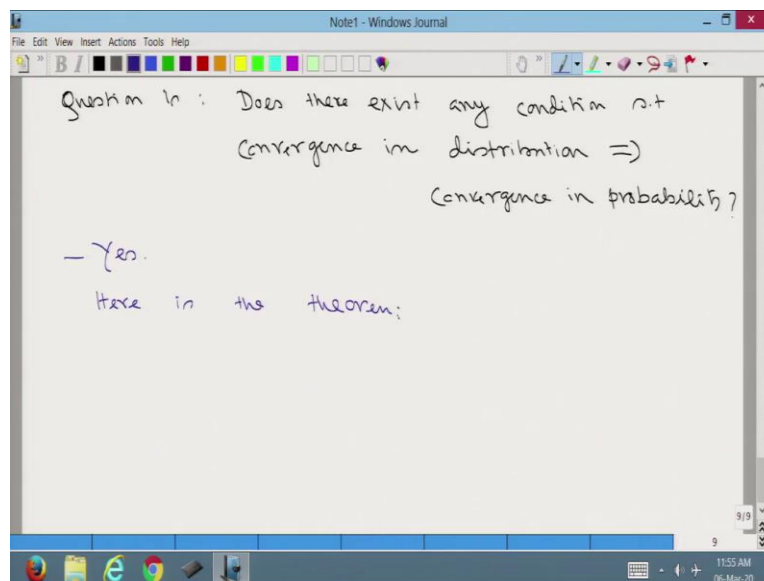 Note1 - Windows Journal
File Edit View Insert Actions Tools Help
Question is : Does there exist any condition s.t
Convergence in distribution =)
Convergence in probability ?
- Yes.
Here is the theorem:
9/9
9
11:55 AM
06-Mar-20